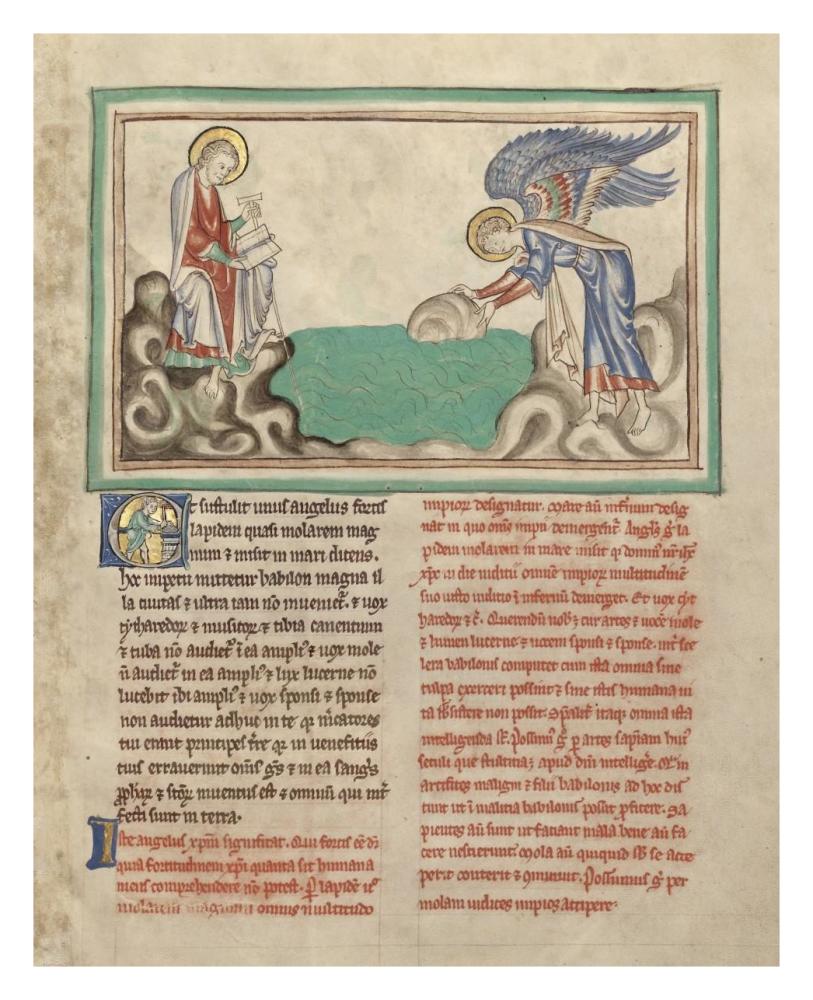 Et sustulit unus angelus fortis
lapidem quasi molarem mag
num ⁊ misit in mari dicens.
hoc impetu mittetur babilon magna il
la ciuitas ⁊ ultra iam nō inueniet᷑. ⁊ uox
cytharedoꝝ ⁊ musicoꝝ ⁊ tibia canentium
⁊ tuba nō audiet᷑ ī ea ampliꝰ ⁊ uox mole
ñ audiet᷑ in ea ampliꝰ ⁊ lux lucerne nō
lucebit ibi ampliꝰ ⁊ uox sponsi ⁊ sponse
non audietur adhuc in te qr m̄catores
tui erant principes t̄re qr in ueneficiis
tuis errauerunt om̄s gn̄s ⁊ in ea sangͥs
ꝓphaꝝ ⁊ sc̄oꝝ inuentus est ⁊ omnium qui int̄
fecti sunt in terra.
Iste angelus xp̄m significat. Qui fortis ē dr̄
quia fortitudinem xp̄i quanta sit humana
mens comprehendere nō potest. Per lapidē ū
molarem magnum omnis multitudo
impioꝝ designatur. Mare aū infernum desig
nat in quo om̄s impii demergent᷑. Angl̄s g̊ la
pidem molarem in mare misit qr domin̄ nr̄ ih̄c
xp̄c in die iudicii omnem impioꝝ multitudinē
suo iusto iudicio ī infernū demerget. Et uox cyt
haredoꝝ ⁊ c̄. Querendū nob̄ ē cur artes ⁊ uocē mole
⁊ lumen lucerne ⁊ uocem sponsi ⁊ sponse. int̄ sce
lera babilonis computet cum ista omnia sine
culpa exerceri possint ⁊ sine istis humana ui
ta subsistere non possit. Sp̄alit᷑ itaqꝫ omnia ista
intelligenda st̄. Possumꝰ g̊ ꝑ artes sapiam huiꝰ
seculi que stulticia ē apud dm̄ intellige. Qm̄
artifices maligni ⁊ fabri babilonis ad hoc dis
cunt ut ī malicia babilonis possit ꝓficere. Sa
pientes aū sunt ut faciant mala bene aū fa
cere nescierunt. Mola aū quicquid sb̄ se acce
perit conterit ⁊ ōminuit. Possumus g̊ per
molam iudices impios accipere.